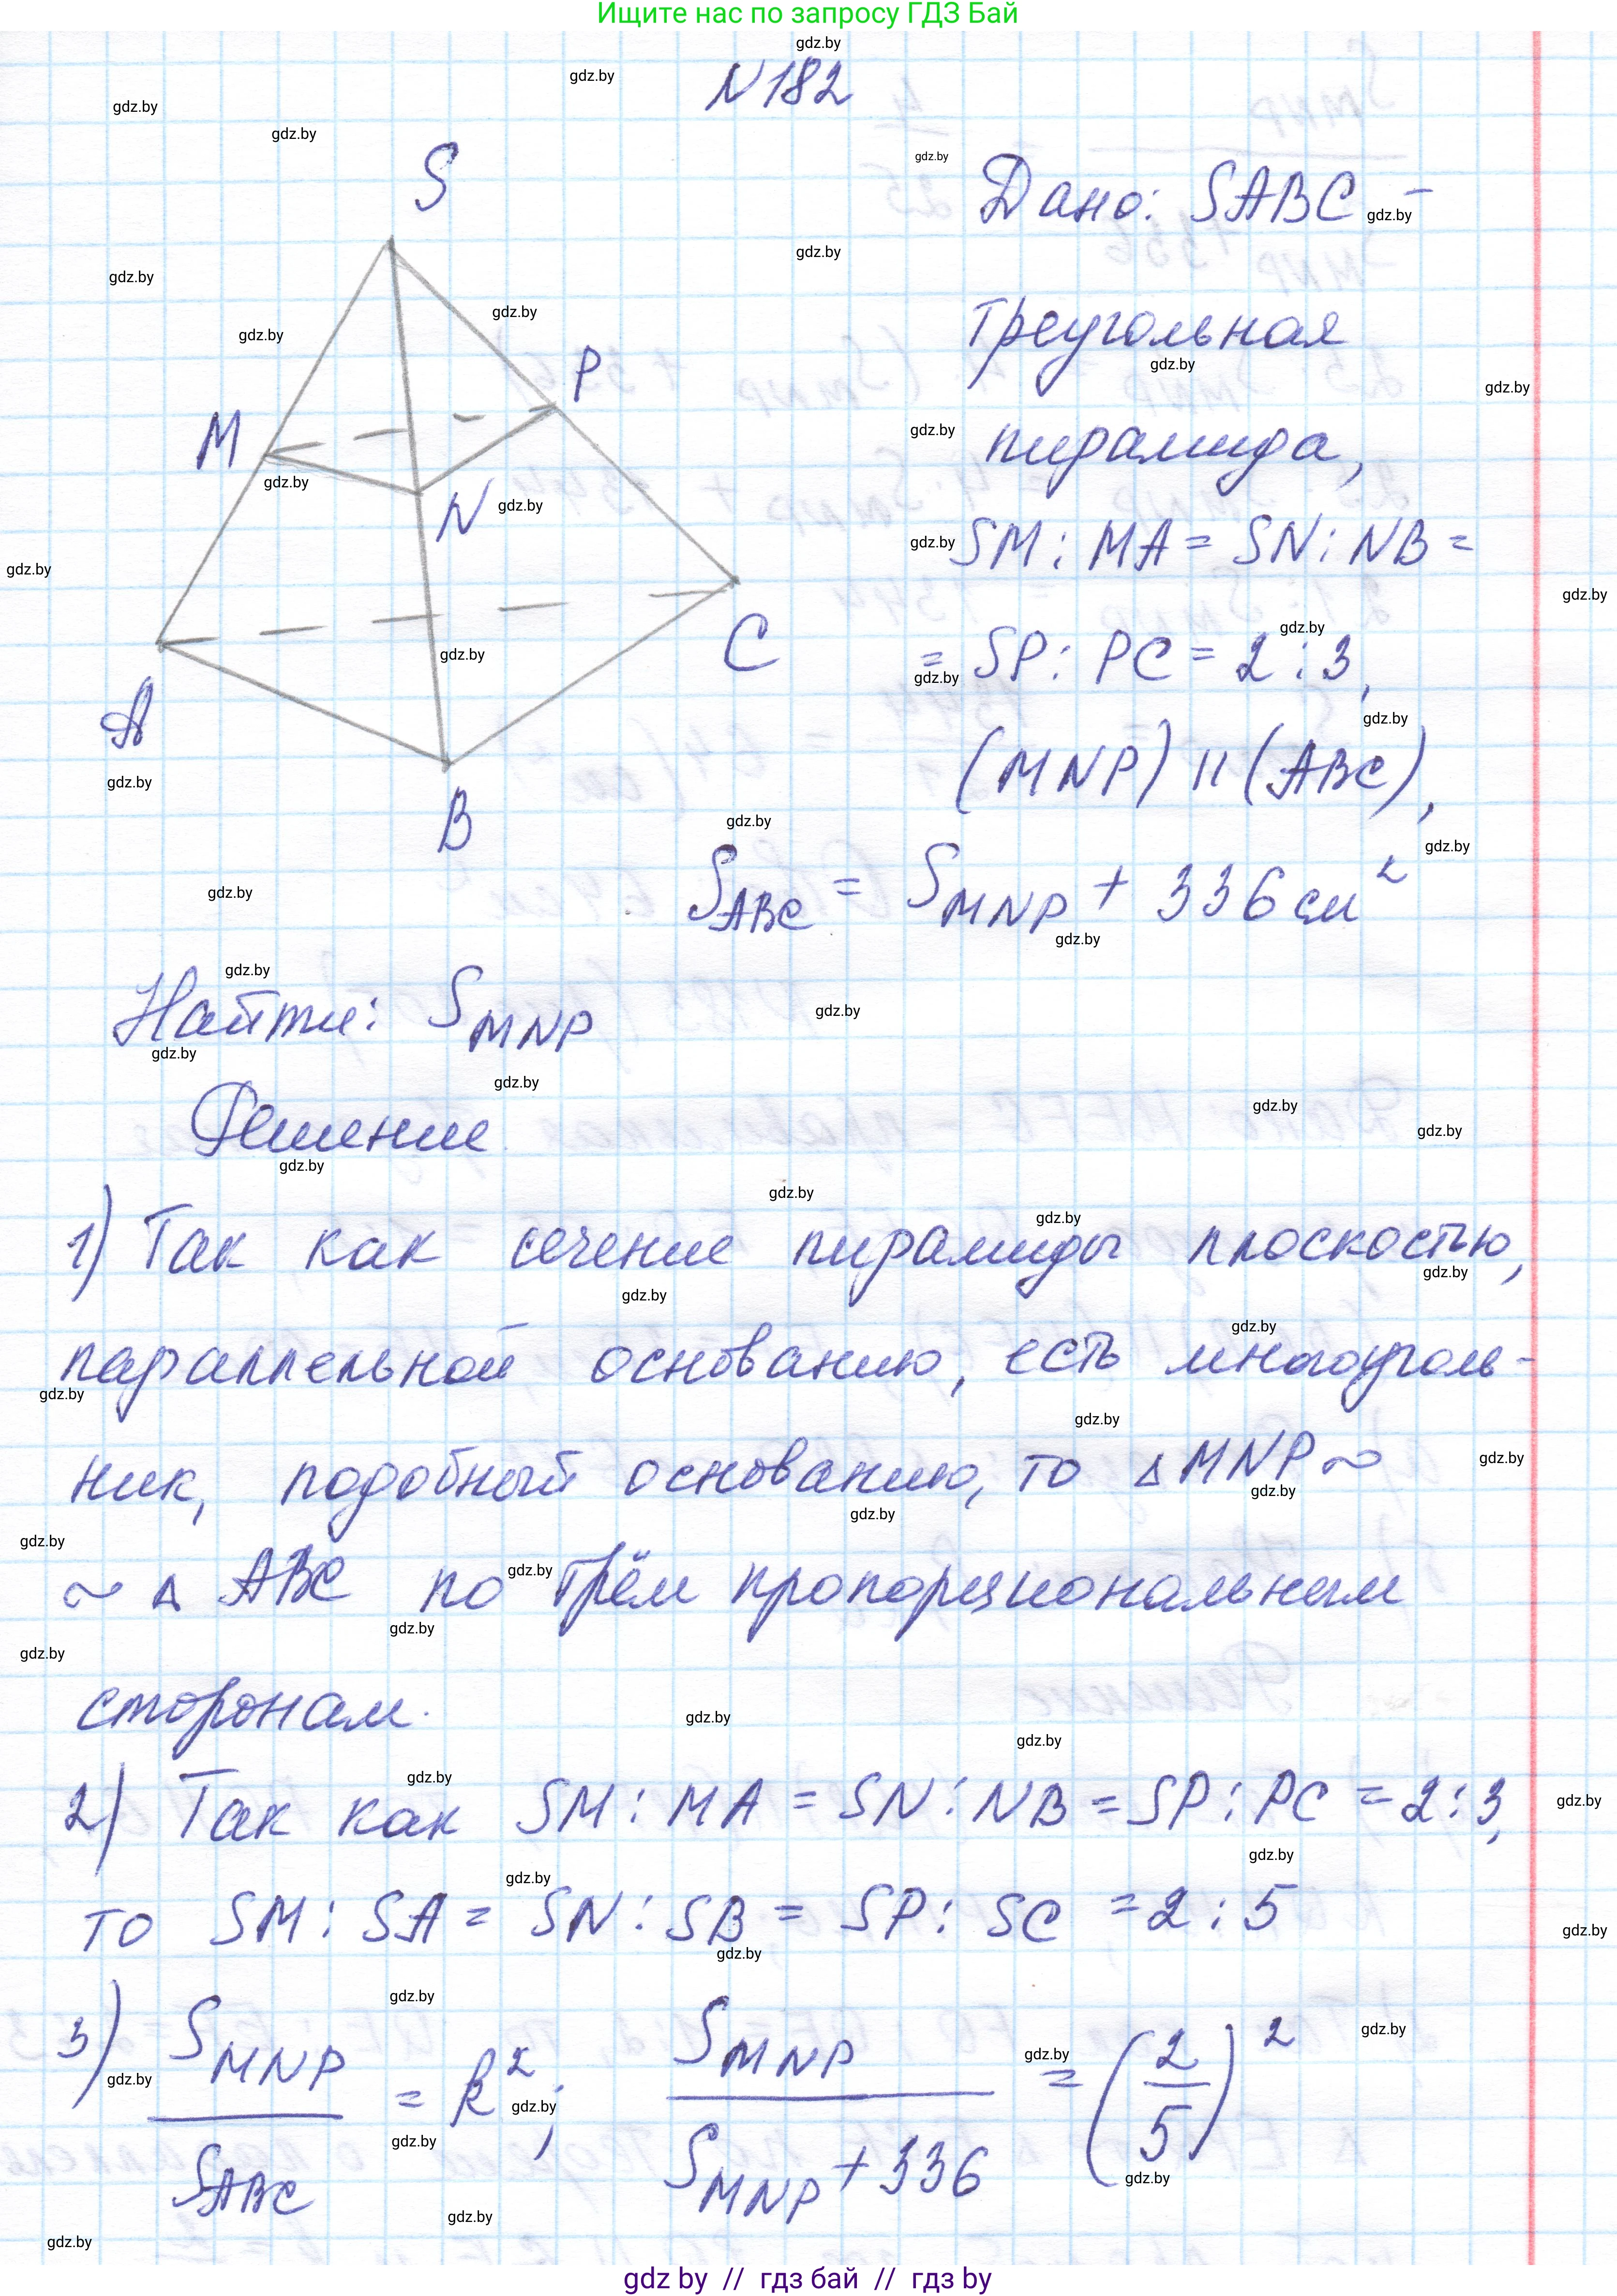 Ищите нас по запросу ГДЗ Бай
N 182
S
M
P
N
A
B
C
Дано: SABC –
треугольная
пирамида,
SM : MA = SN : NB =
= SP : PC = 2 : 3,
(MNP) || (ABC),
S_ABC = S_MNP + 336 см²
Найти: S_MNP
Решение
1) Так как сечение пирамиды плоскостью,
параллельной основанию, есть многоуголь-
ник, подобный основанию, то △ MNP ~
~ △ ABC по трём пропорциональным
сторонам.
2) Так как SM : MA = SN : NB = SP : PC = 2 : 3,
то SM : SA = SN : SB = SP : SC = 2 : 5
3) S_MNP / S_ABC = k²; S_MNP / (S_MNP + 336) = (2/5)²
gdz by // гдз бай // гдз by